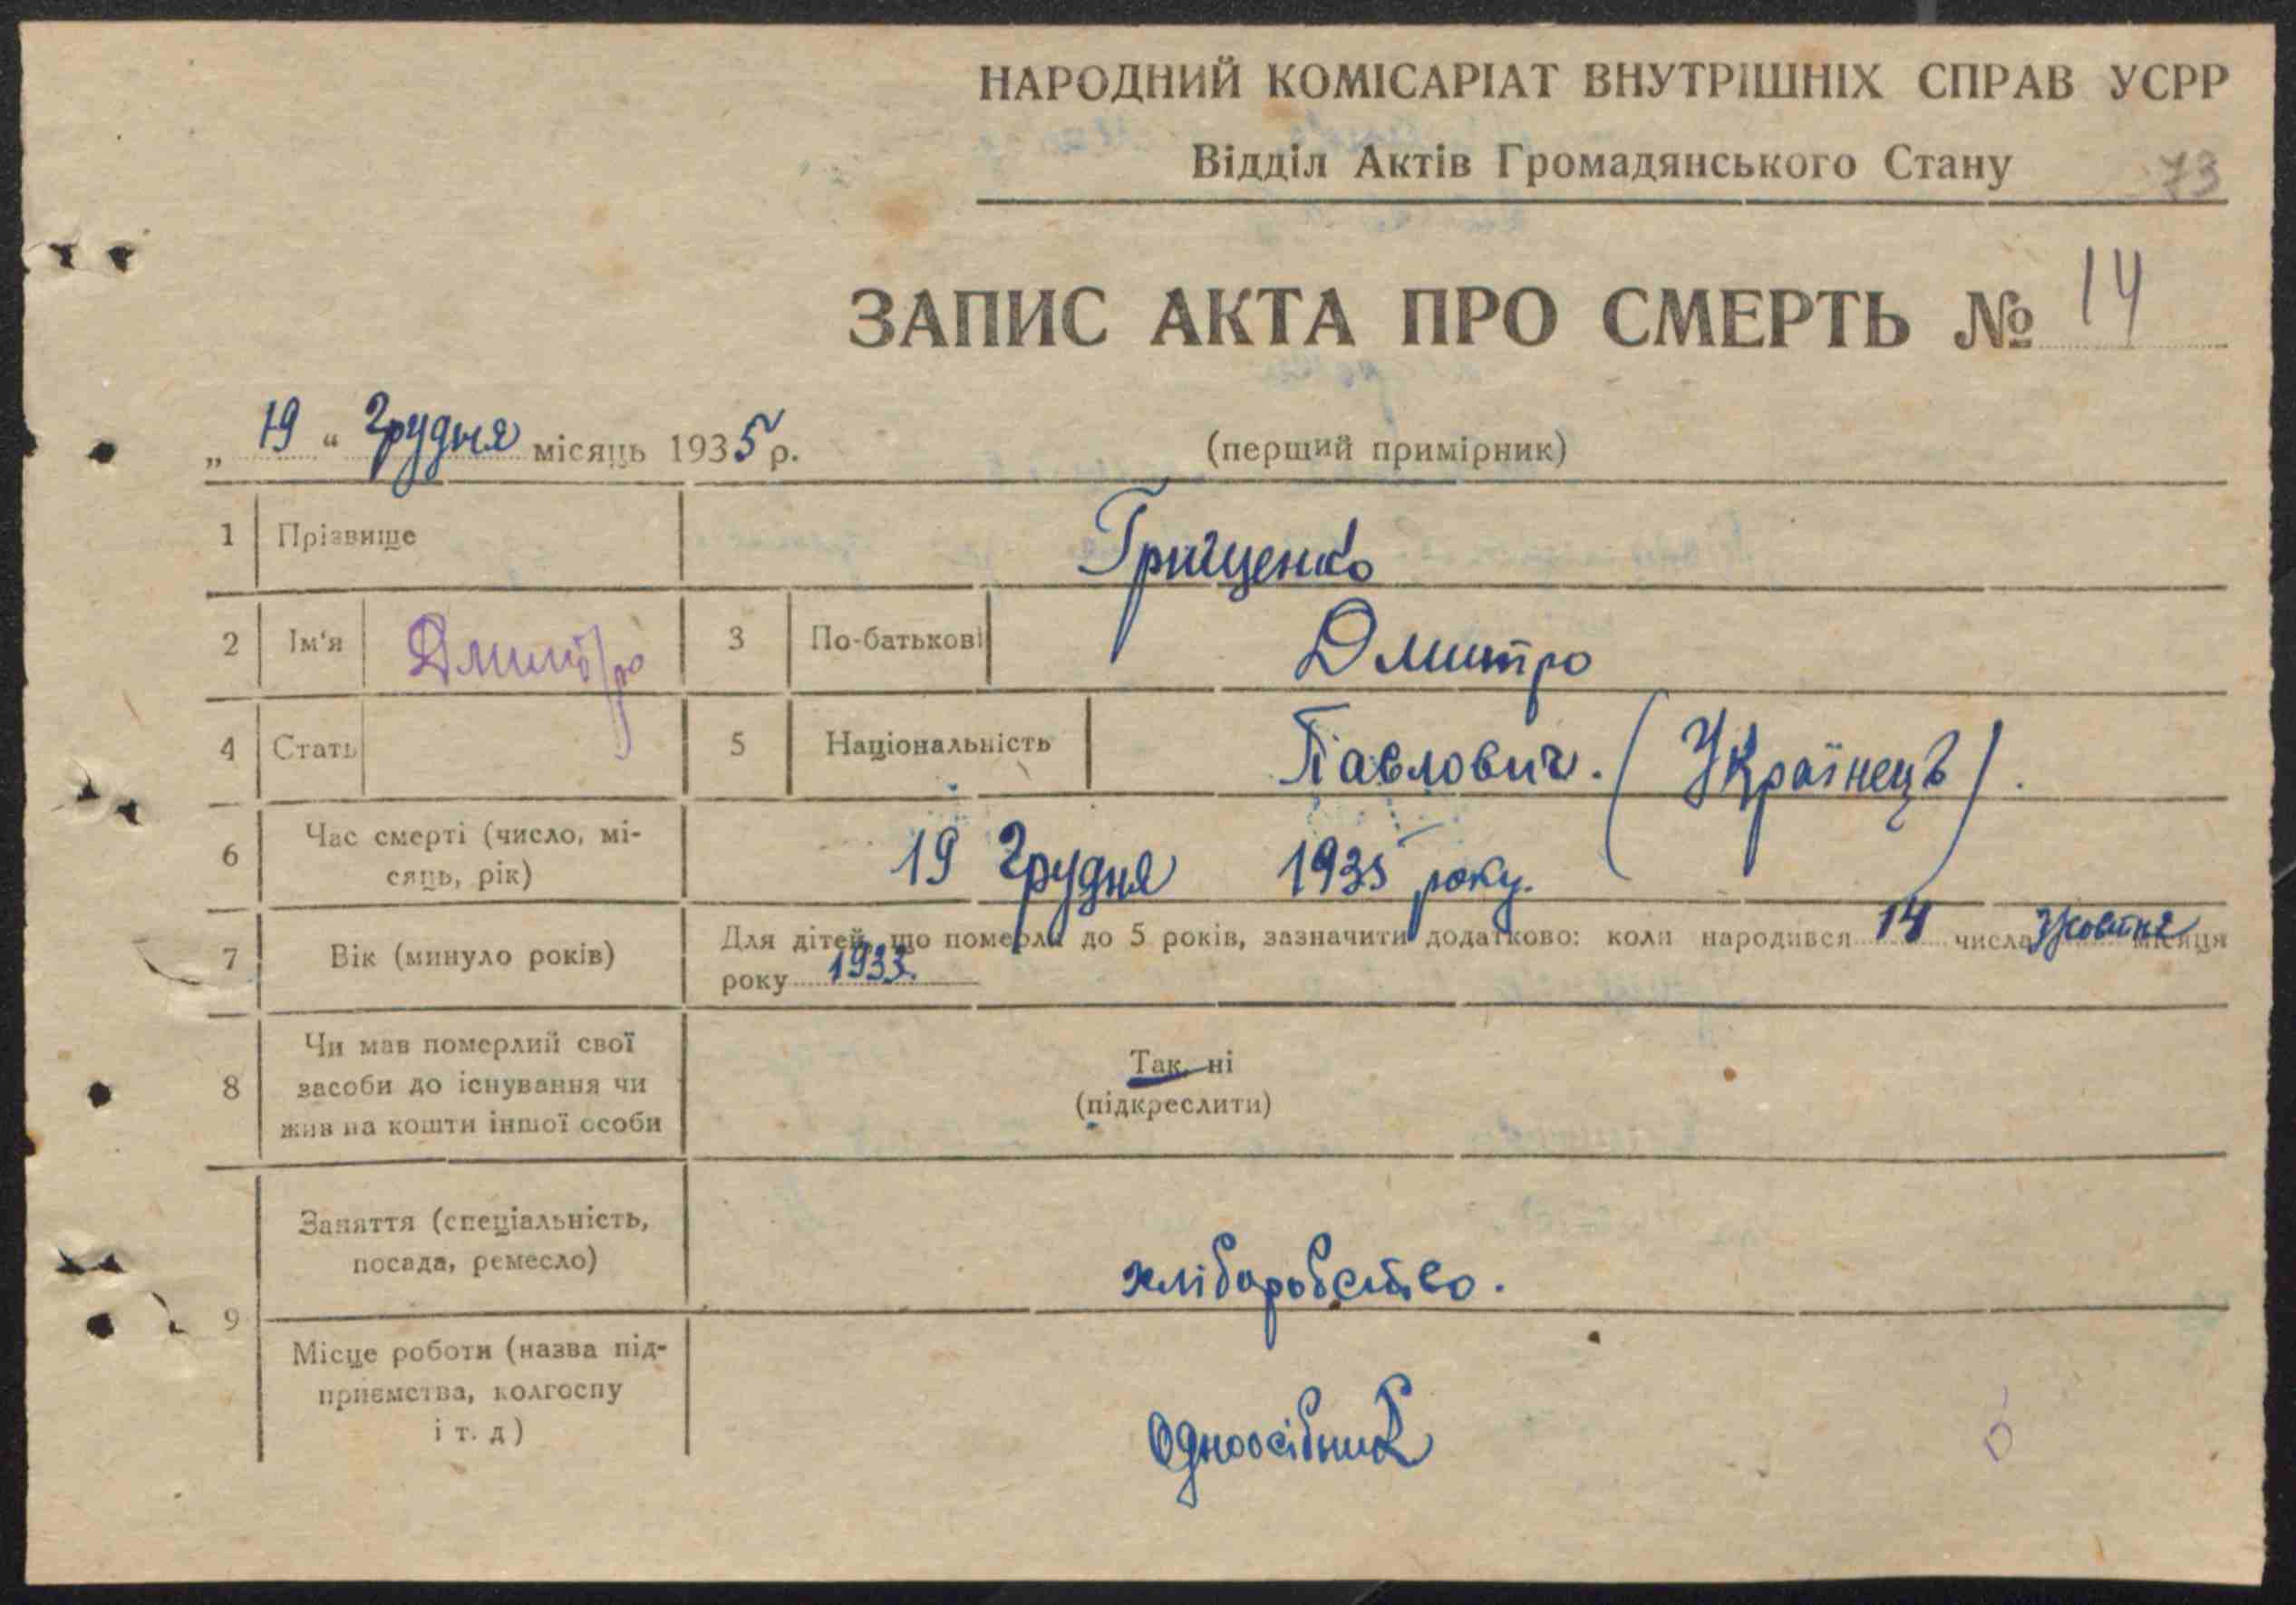 НАРОДНИЙ КОМІСАРІАТ ВНУТРІШНІХ СПРАВ УСРР
Відділ Актів Громадянського Стану 73
ЗАПИС АКТА ПРО СМЕРТЬ № 14
„ 19 “ Грудня місяць 1935 р. (перший примірник)
1 Прізвище Грищенко
2 Ім‘я Дмитро 3 По-батькові Дмитро
4 Стать 5 Національність Павлович. (Українець).
6 Час смерті (число, мі-
сяць, рік) 19 Грудня 1935 року.
7 Вік (минуло років) Для дітей, що померли до 5 років, зазначити додатково: коли народився 14 числа Жовтня місяця
року 1933.
8 Чи мав померлий свої
засоби до існування чи
жив на кошти іншої особи
Так, ні
(підкреслити)
9 Заняття (спеціальність,
посада, ремесло) хліборобство.
Місце роботи (назва під-
приємства, колгоспу
і т. д) Одноосібник